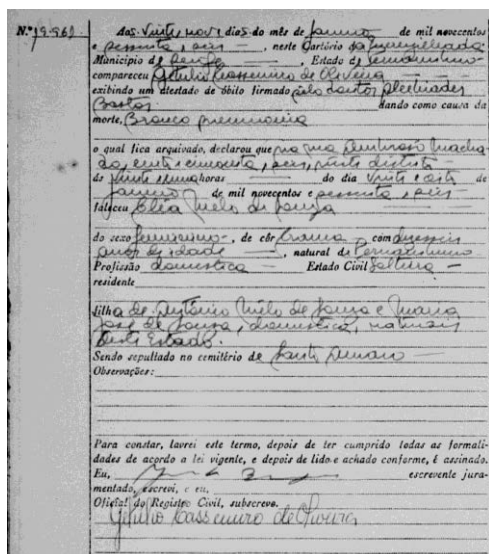 Nº 19.962
Aos vinte nove dias do mês de janeiro de mil novecentos
e sessenta e seis, neste Cartório da Encruzilhada
Município de Recife, Estado de Pernambuco
compareceu Getulio Cassemiro de Oliveira
exibindo um atestado de óbito firmado pelo doutor Alcebiades
Bastos dando como causa da
morte, Bronco pneumonia
o qual fica arquivado, declarou que na rua Ambrosio Macha-
do, cento e cincoenta e seis, neste distrito
às vinte e uma horas do dia vinte e oito de
janeiro de mil novecentos e sessenta e seis
faleceu Célia Melo de Souza
do sexo feminino, de côr branca com dezesseis
anos de idade, natural de Pernambuco
Profissão domestica Estado Civil Solteira
residente
filha de Antônio Melo de Souza e Maria
José de Souza, domestica, naturais
deste Estado.
Sendo sepultado no cemitério de Santo Amaro
Observações:
Para constar, lavrei este termo, depois de ter cumprido todas as formali-
dades de acordo a lei vigente, e depois de lido e achado conforme, é assinado.
Eu, escrevente jura-
mentado, escrevi, e eu,
Oficial do Registro Civil, subscrevo.
Getulio Cassemiro de Oliveira